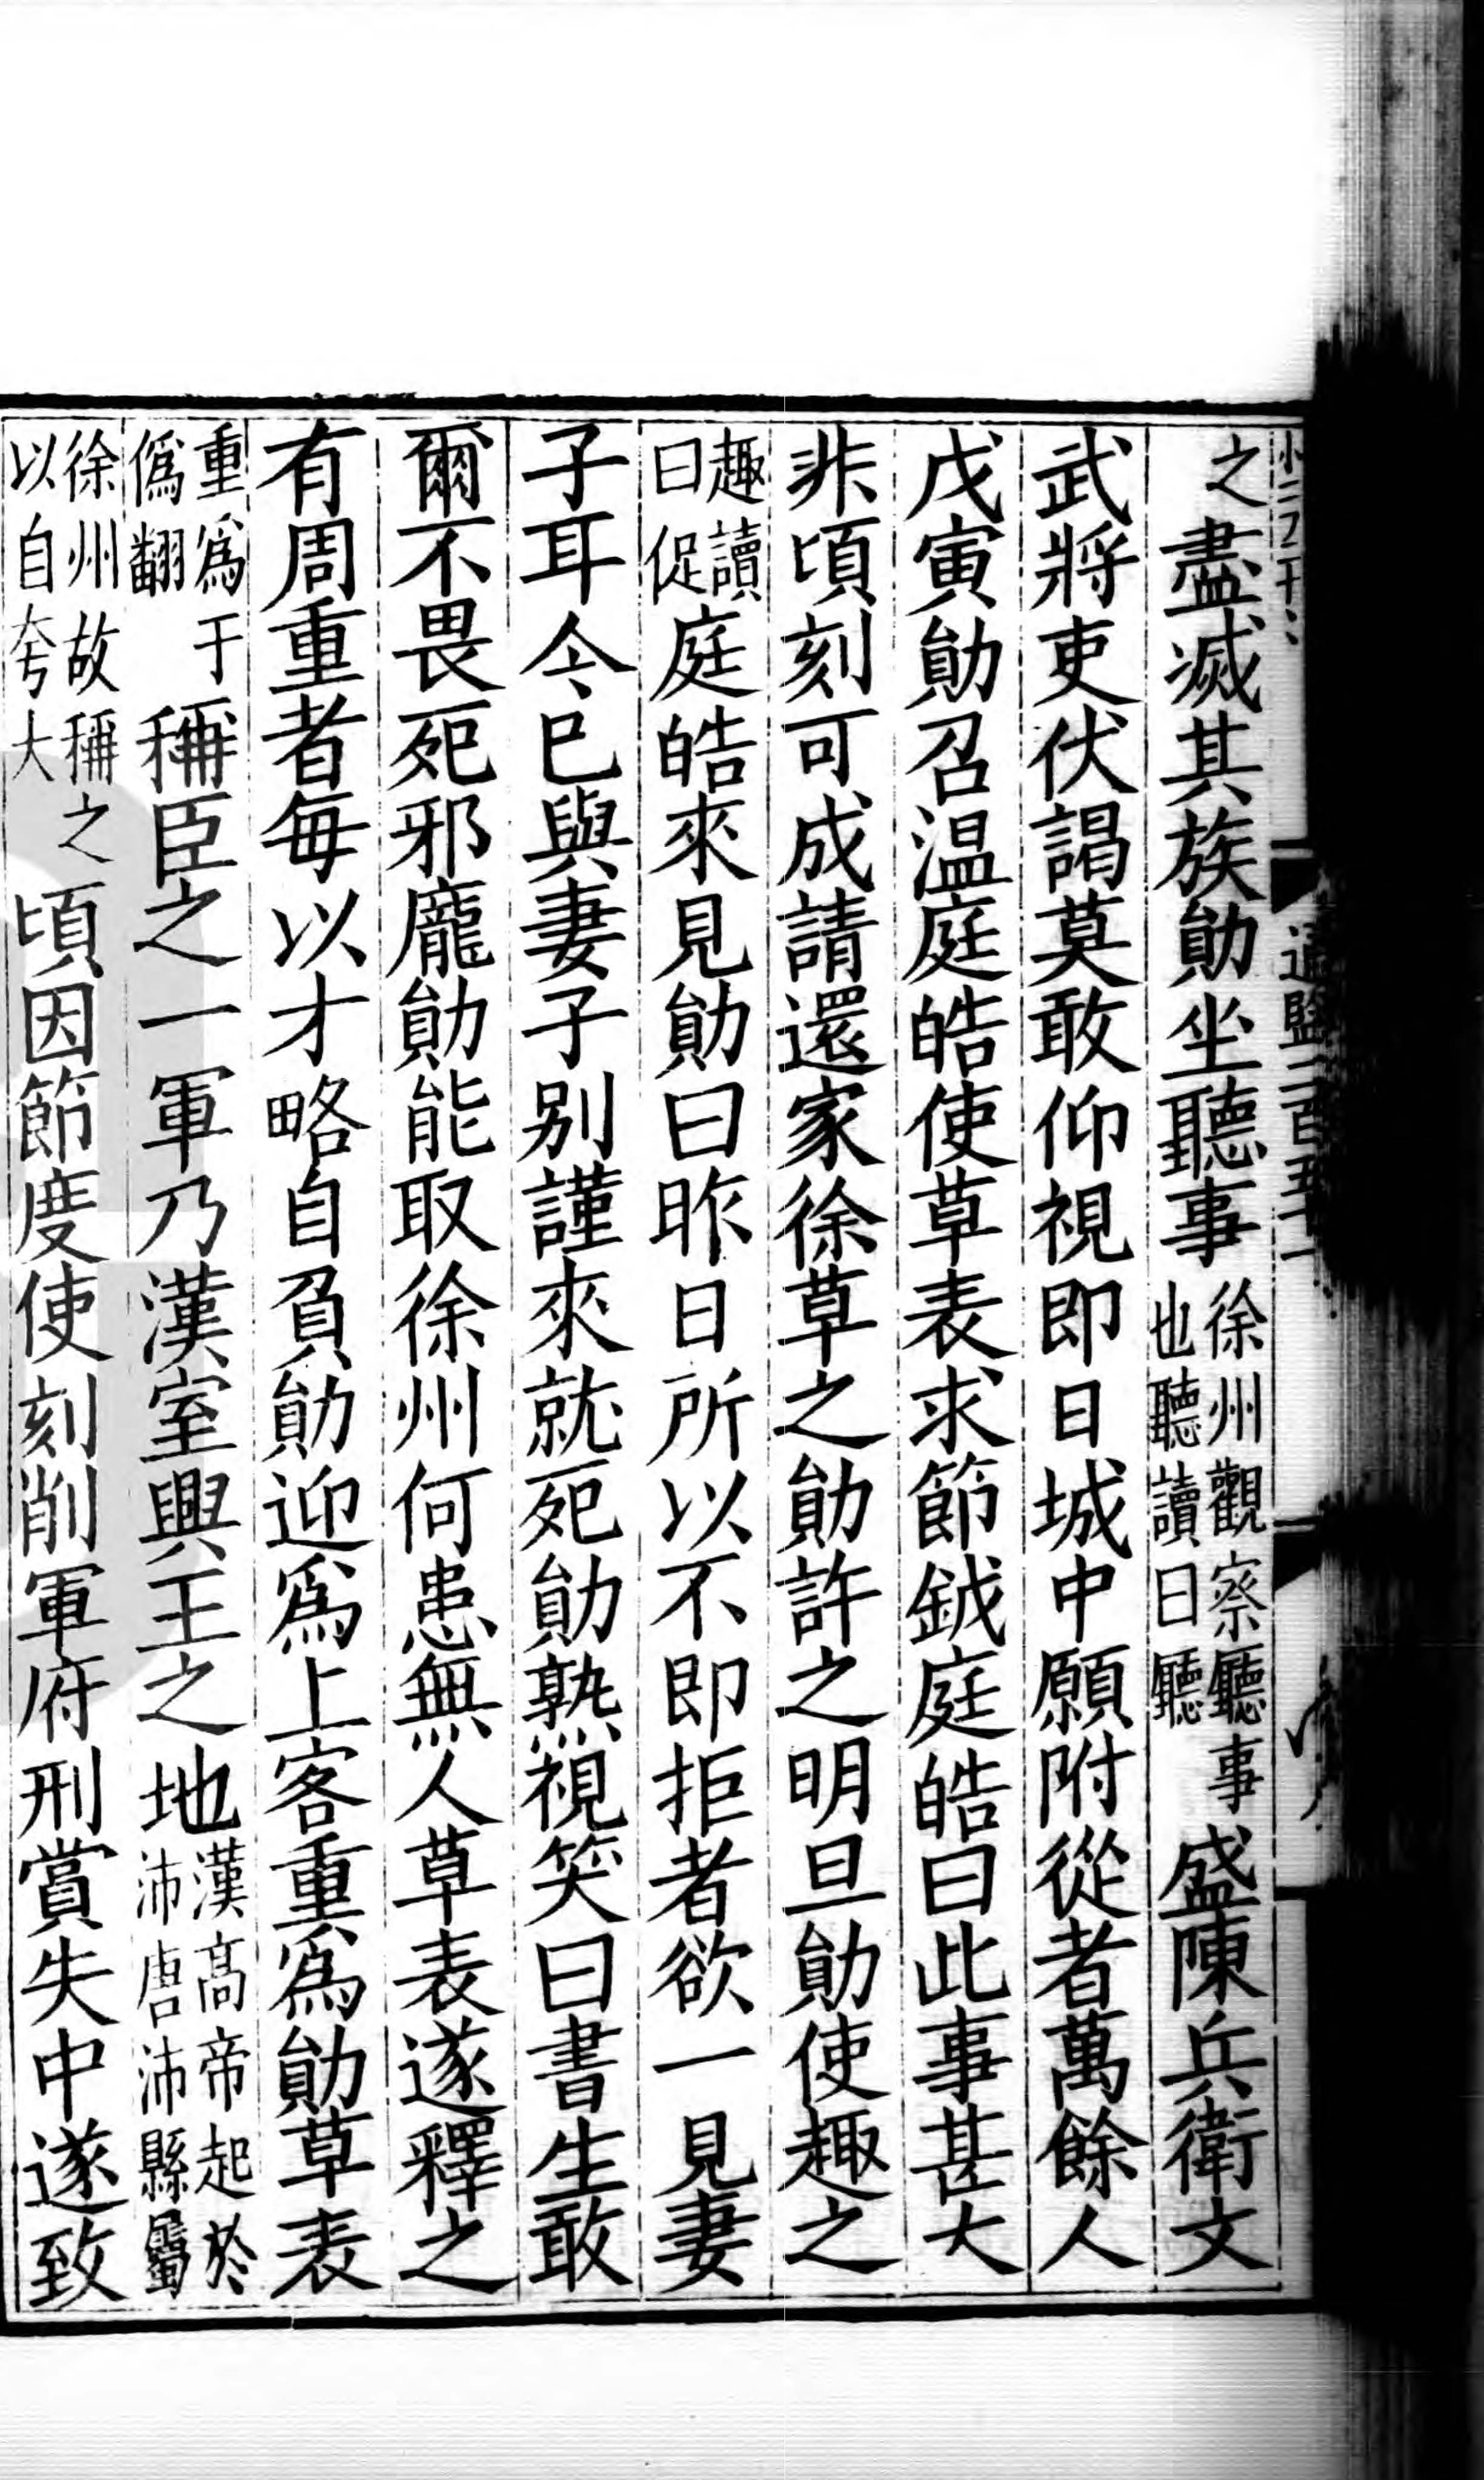 之盡滅其族勛坐聽事徐州觀察廳事也聽讀曰廳盛陳兵衛文
武將吏伏謁莫敢仰視即日城中願附從者萬餘人
戊寅勛召温庭皓使草表求節鉞庭皓曰此事甚大
非頃刻可成請還家徐草之勛許之明旦勛使趣之
趣讀曰促庭皓來見勛曰昨日所以不即拒者欲一見妻
子耳今已與妻子别謹來就死勛熟視笑曰書生敢
爾不畏死邪龐勛能取徐州何患無人草表遂釋之
有周重者每以才略自負勛迎爲上客重爲勛草表
重爲于僞翻稱臣之一軍乃漢室興王之地漢高帝起於沛唐沛縣屬
徐州故稱之以自夸大頃因節度使刻削軍府刑賞失中遂致